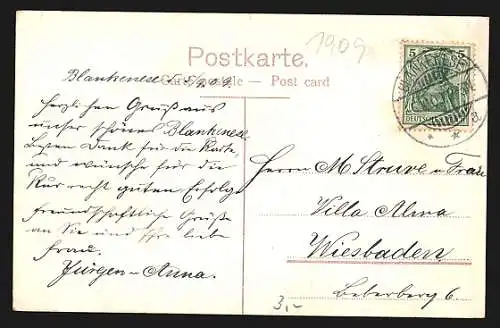 Postkarte.
1909
Carte postale — Post card
5 5
DEUTSCHES
BLANKENESE
Blankenese 5. 5/4 09
Herzlichen Gruß aus
unser schönes Blankenese
Besten Dank für die Karte
und wünsche für die
Kur recht guten Erfolg.
freundschaftliche Grüße
an Sie und Ihre liebe
Frau.
Jürgen-Anna.
Herrn M. Struve u. Frau
Villa Alma
Wiesbaden
Leberberg 6
3,-